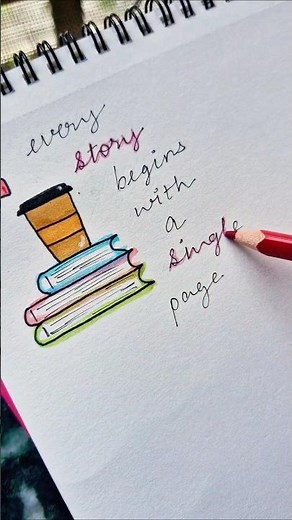 every
story
begins
with
a
single
page